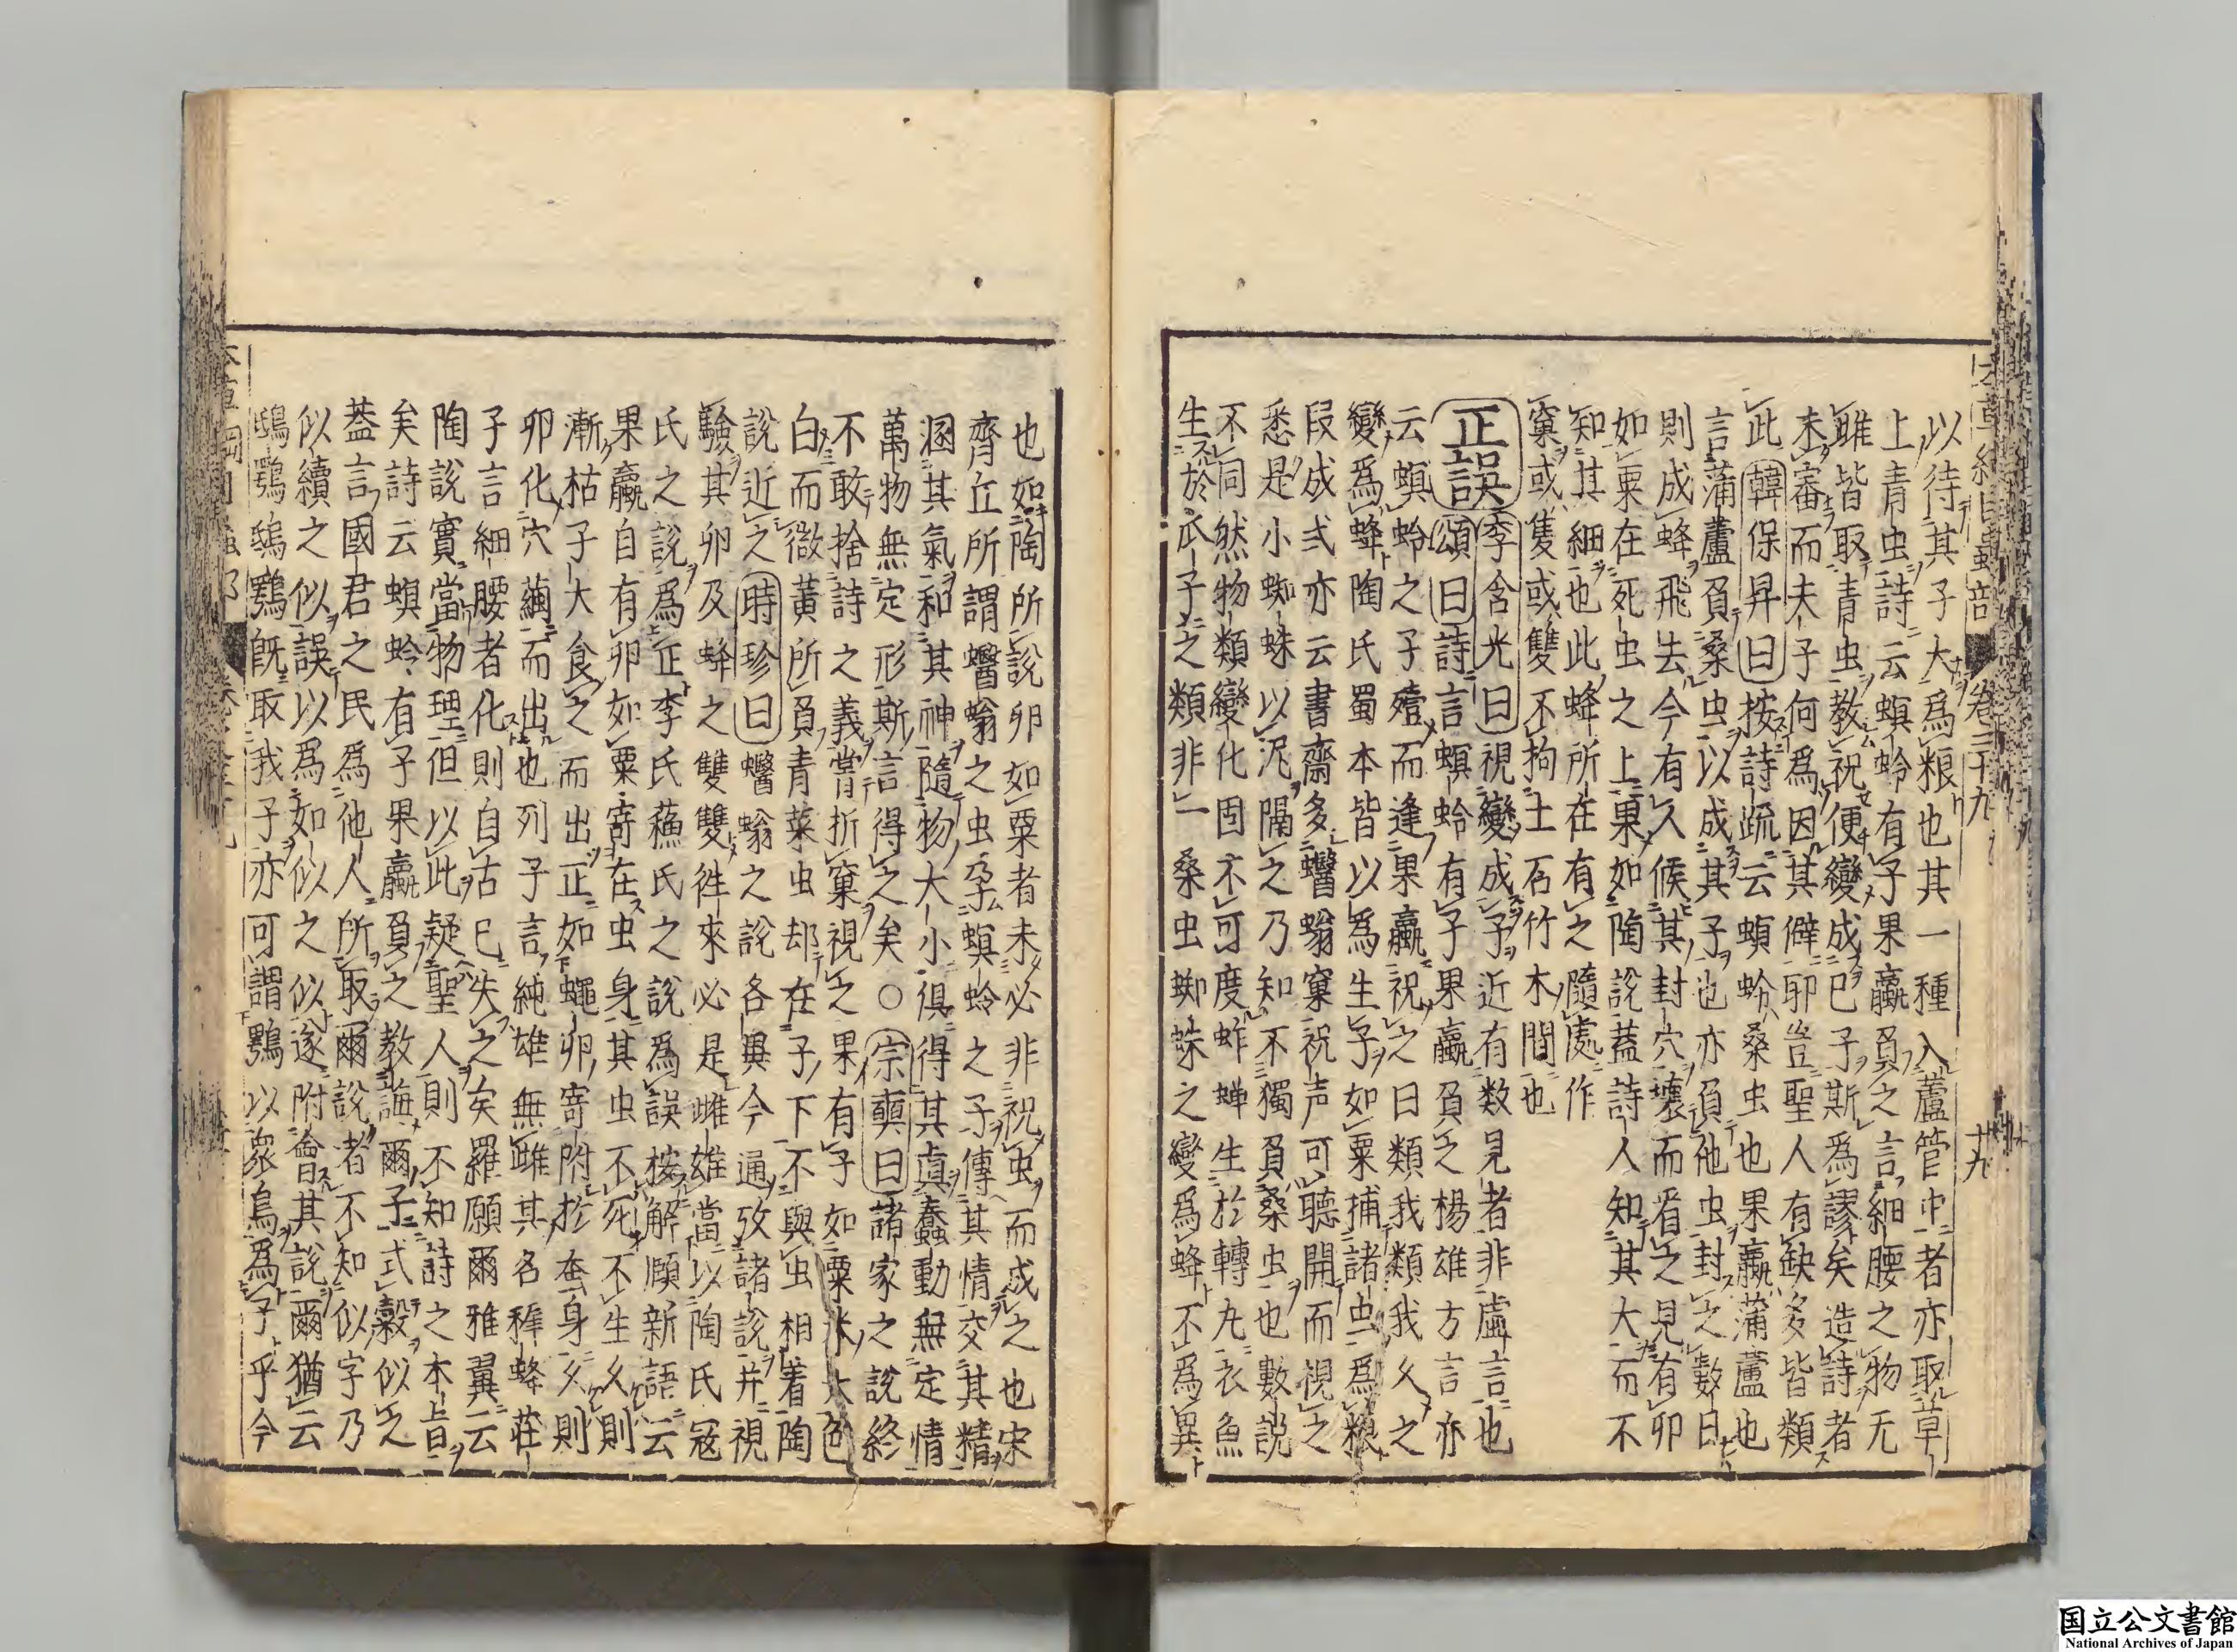 以待其子大爲粮也其一種入蘆管中者亦取草
上青虫詩云螟蛉有子果蠃負之言細腰之物无
雌皆取青虫教祝便變成巳子斯爲謬矣造詩者
未審而夫子何爲因其僻耶豈聖人有缺多皆類
此韓保昇曰按詩疏云螟蛉桑虫也果蠃蒲蘆也
言蒲蘆負桑虫以成其子也亦負他虫封之數日
則成蜂飛去今有人候其封穴壞而看之見有卵
如粟在死虫之上果如陶說蓋詩人知其大而不
知其細也此蜂所在有之隨處作
窠或隻或雙不拘土石竹木間也
正誤李含光曰視變成子近有数見者非虛言也
頌曰詩言螟蛉有子果蠃負之楊雄方言亦
云螟蛉之子殪而逢果蠃祝之曰類我類我久之
變爲蜂陶氏蜀本皆以爲生子如粟捕諸虫爲粮
段成式亦云書齋多蠮螉窠祝声可聽開而視之
悉是小蜘蛛以泥隔之乃知不獨負桑虫也數說
不同然物類變化固不可度蚱蝉生於轉丸衣魚
生於瓜子之類非一桑虫蜘蛛之變爲蜂不爲異
也如陶所說卵如粟者未必非祝虫而成之也宋
齊丘所謂蠮螉之虫孕螟蛉之子傳其情交其精
混其氣和其神隨物大小俱得其眞蠢動無定情
萬物無定形斯言得之矣○宗奭曰諸家之說終
不敢捨詩之義嘗折窠視之果有子如粟米大色
白而微黃所負青菜虫却在子下不與虫相着陶
說近之時珍曰蠮螉之說各異今通攷諸說并視
驗其卵及蜂之雙雙徃來必是雌雄當以陶氏寇
氏之說爲正李氏蘓氏之說爲誤按解頤新語云
果蠃自有卵如粟寄在虫身其虫不死不生久則
漸枯子大食之而出正如蠅卵寄附於蚕身久則
卵化穴繭而出也列子言純雄無雌其名稺蜂莊
子言細腰者化則自古巳失之矣羅願爾雅翼云
陶說實當物理但以此疑聖人則不知詩之本旨
矣詩云螟蛉有子果蠃負之教誨爾子式榖似之
葢言國君之民爲他人所取爾說者不知似字乃
似續之似誤以爲如似之似遂附會其說爾猶云
鴟鴞鴟鴞既取我子亦可謂鴞以衆鳥爲子乎今
卷三十九
廿九
国立公文書館
National Archives of Japan